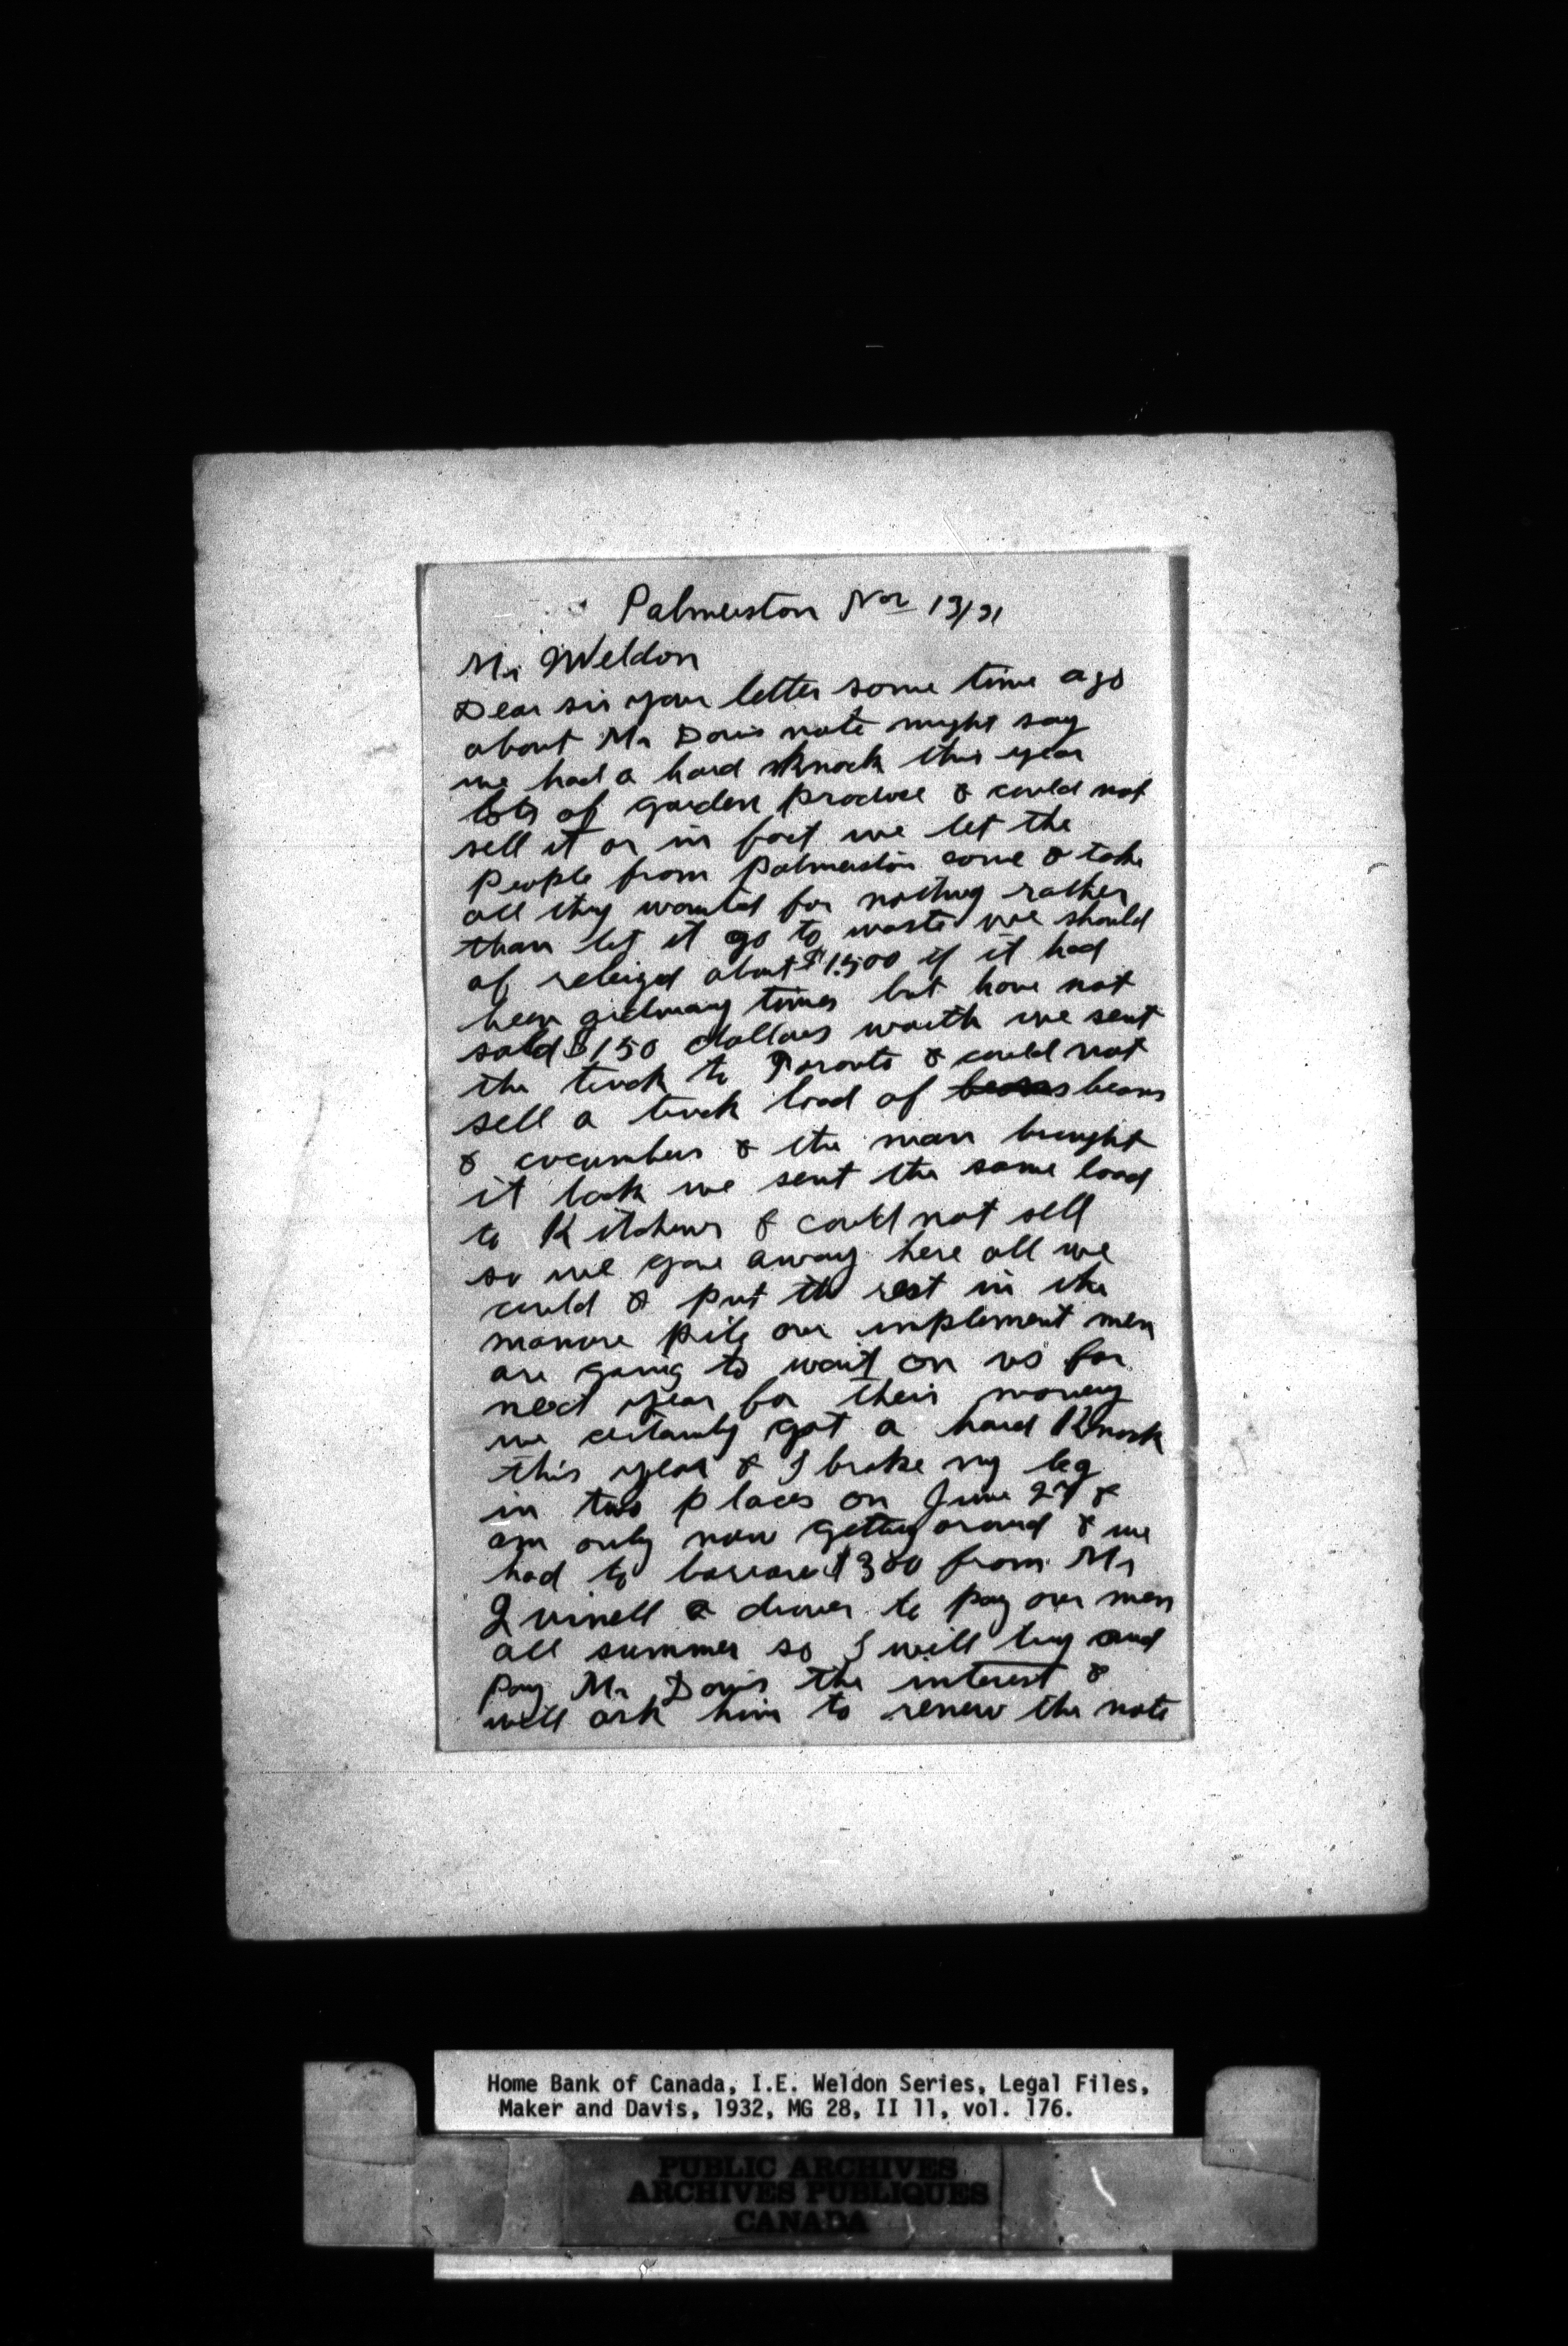 Palmerston Nov 13/31
Mr Weldon
Dear sir your letter some time ago
about Mr Davis note might say
we had a hard knock this year
lots of garden produce & could not
sell it or in fact we let the
people from Palmerston come & take
all they wanted for nothing rather
than let it go to waste we should
of releized about $1500 if it had
been ordinary times but have not
sold $150 dollars worth we sent
the truck to Toronto & could not
sell a truck load of beans beans
& cucumbers & the man brought
it back we sent the same load
to Kitchner & could not sell
so we gave away here all we
could & put the rest in the
manure pile our implement men
are going to wait on us for
next year for their money
we certainly got a hard Knock
this year & I broke my leg
in two places on June 27 &
am only now getting around & we
had to borrow $300 from Mr
a drover to pay our men
all summer so I will try and
pay Mr Davis the interest &
will ask him to renew the note
Home Bank of Canada, I.E. Weldon Series, Legal Files,
Maker and Davis, 1932, MG 28, II 11, vol. 176.
PUBLIC ARCHIVES
ARCHIVES PUBLIQUES
CANADA